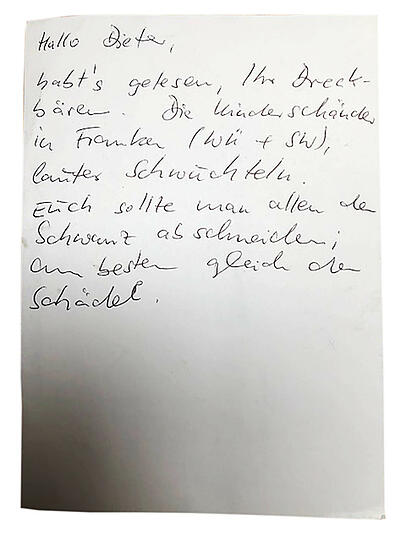 Hallo Dieter,
habt's gelesen, Ihr Dreck-
bären. Die Kinderschänder
in Franken (WÜ + SW),
lauter Schwuchteln.
Euch sollte man allen den
Schwanz abschneiden;
am besten gleich den
Schädel.